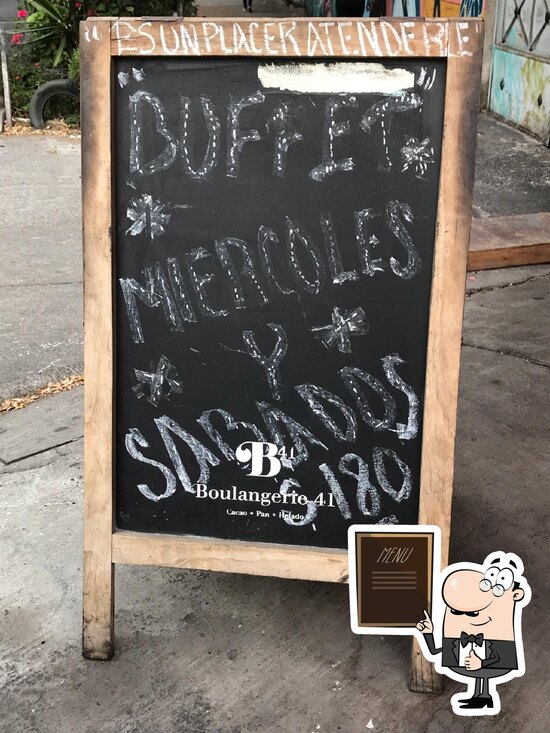 "ES UN PLACER ATENDERLE"
BUFFET
MIERCOLES
Y
SABADOS
$180
B41
Boulangerie 41
Cacao + Pan + Helado
MENU